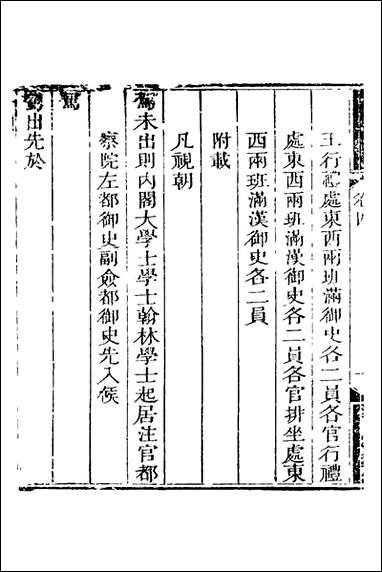 卷四
王行禮處東西兩班滿御史各二員各官行禮
處東西兩班滿漢御史各二員各官排坐處東
西兩班滿漢御史各二員
附載
凡視朝
駕未出則內閣大學士學士翰林學士起居注官都
察院左都御史副僉都御史先入候
駕
駕出先於